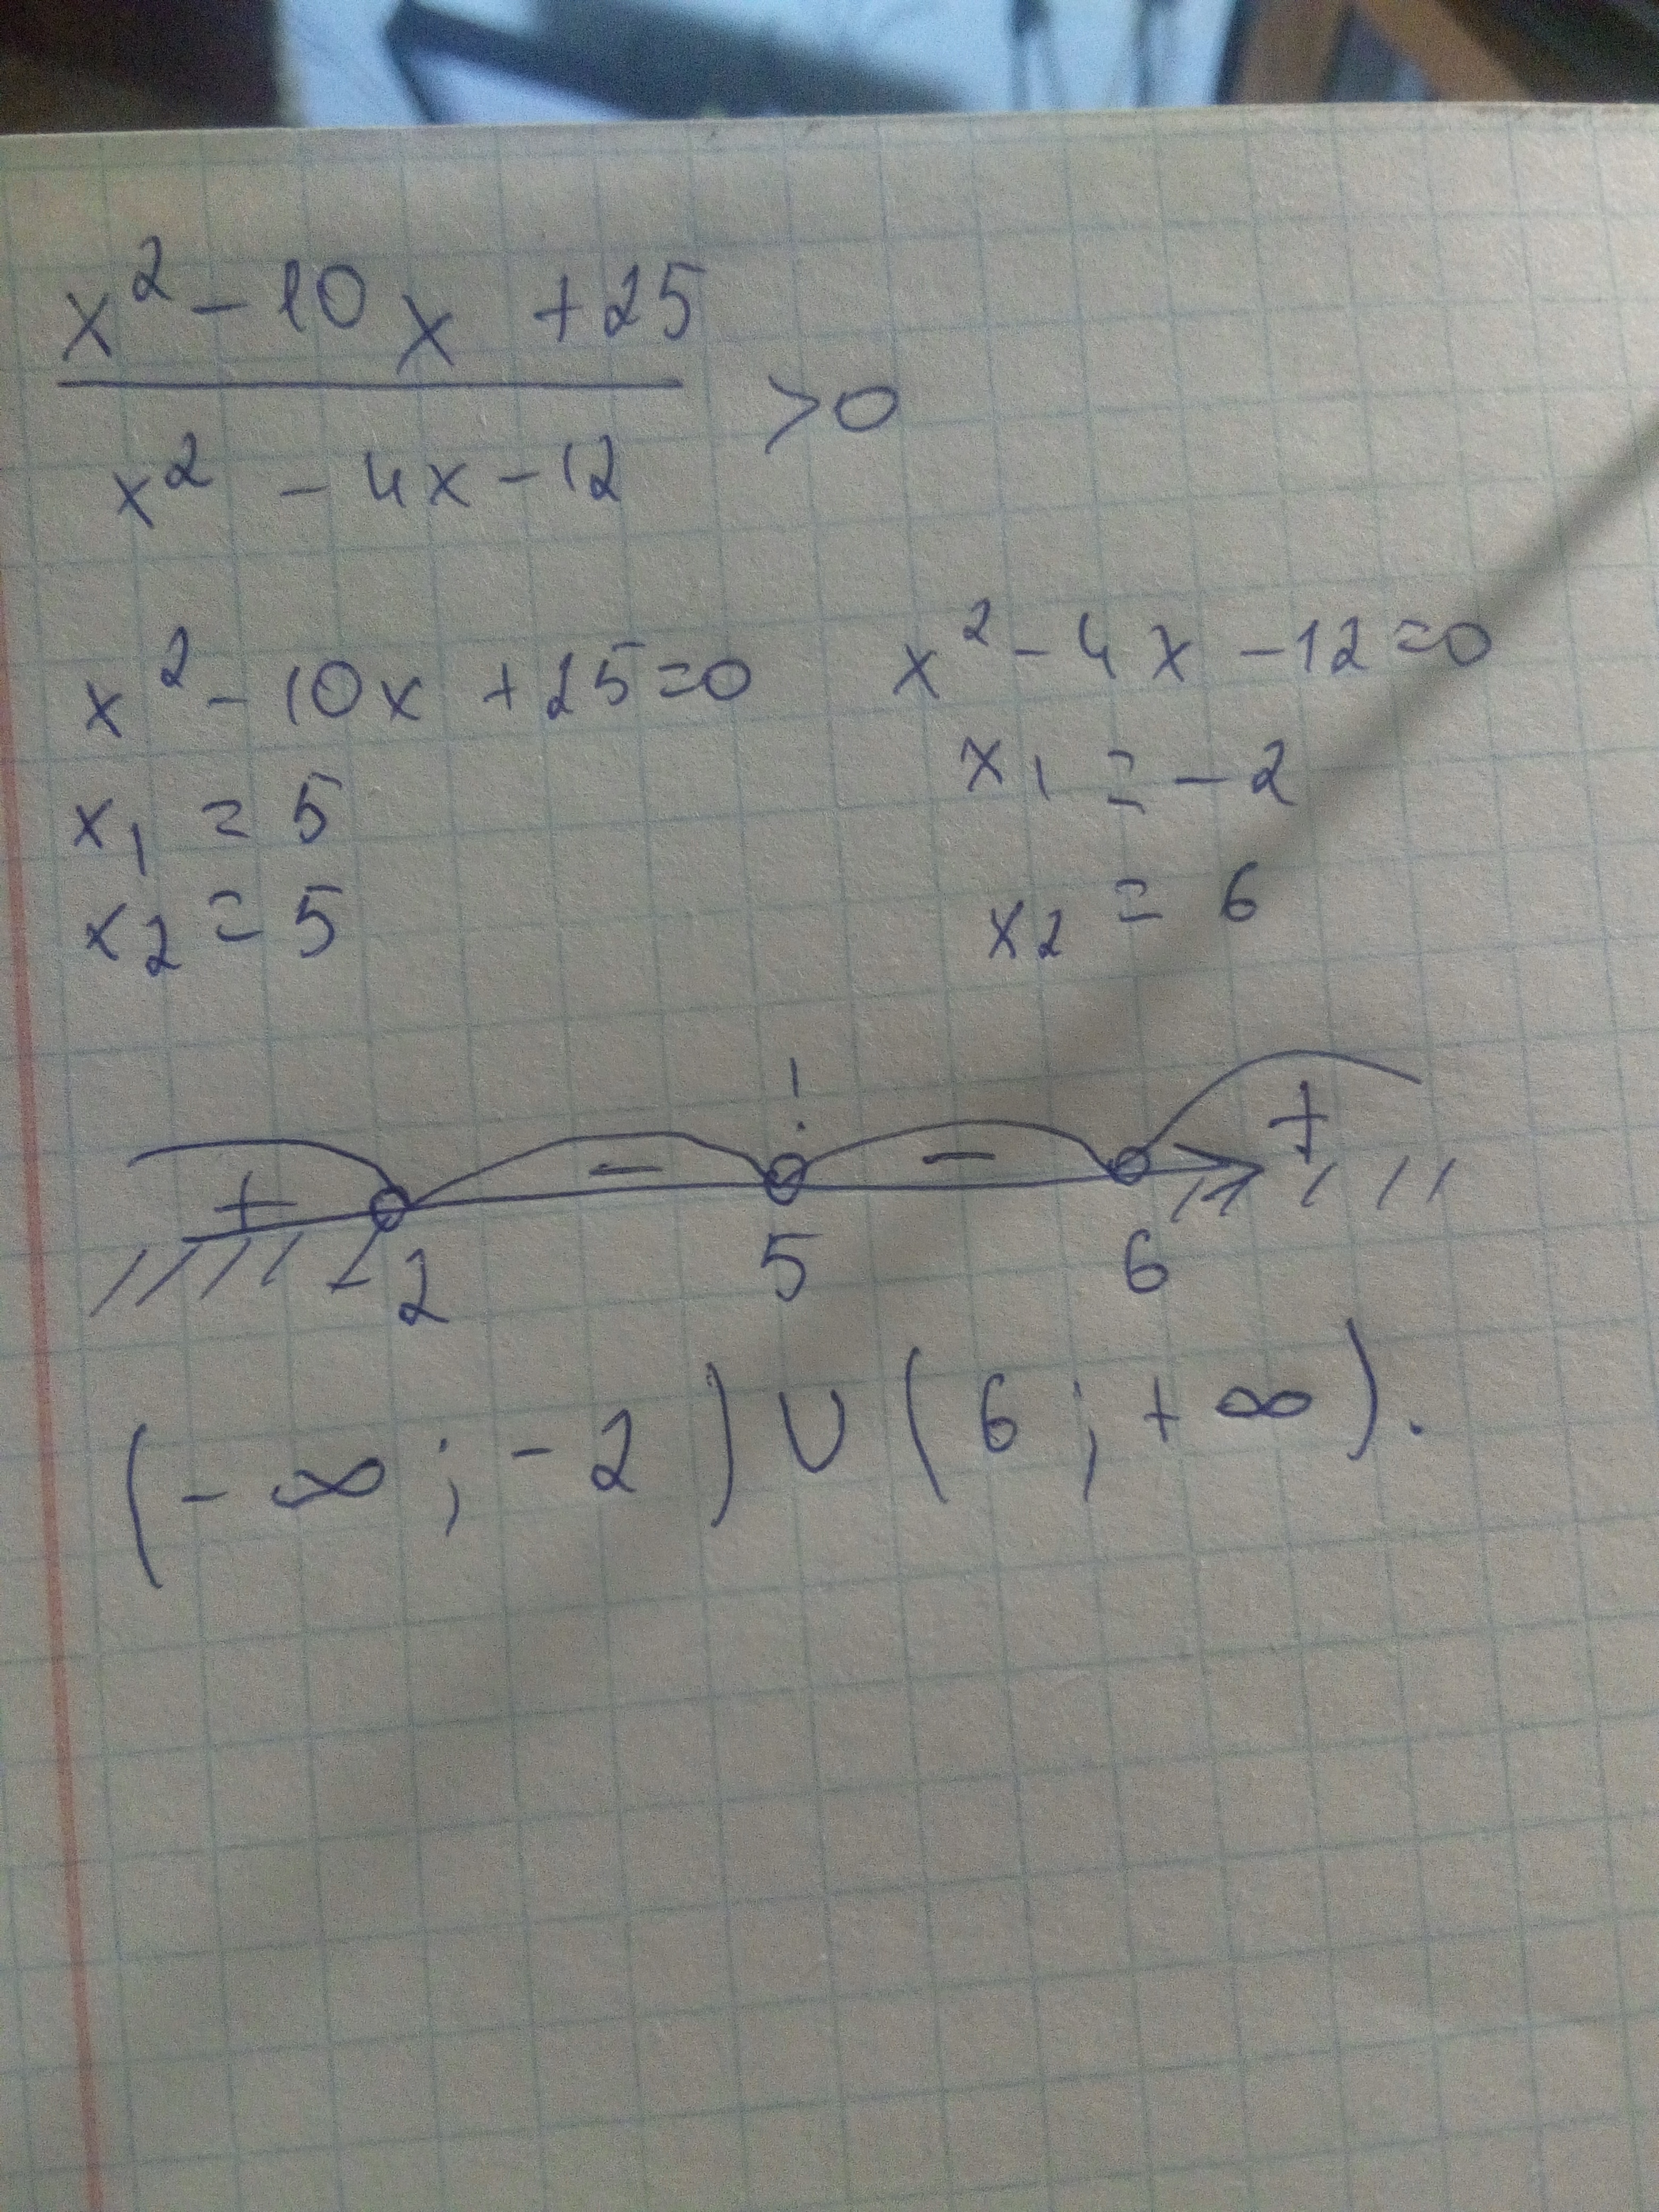 x² - 10x + 25
x² - 4x - 12
>0
x² - 10x + 25 = 0
x₁ = 5
x₂ = 5
x² - 4x - 12 = 0
x₁ = -2
x₂ = 6
!
+ - - +
-2 5 6
(-∞; -2) ∪ (6; +∞).